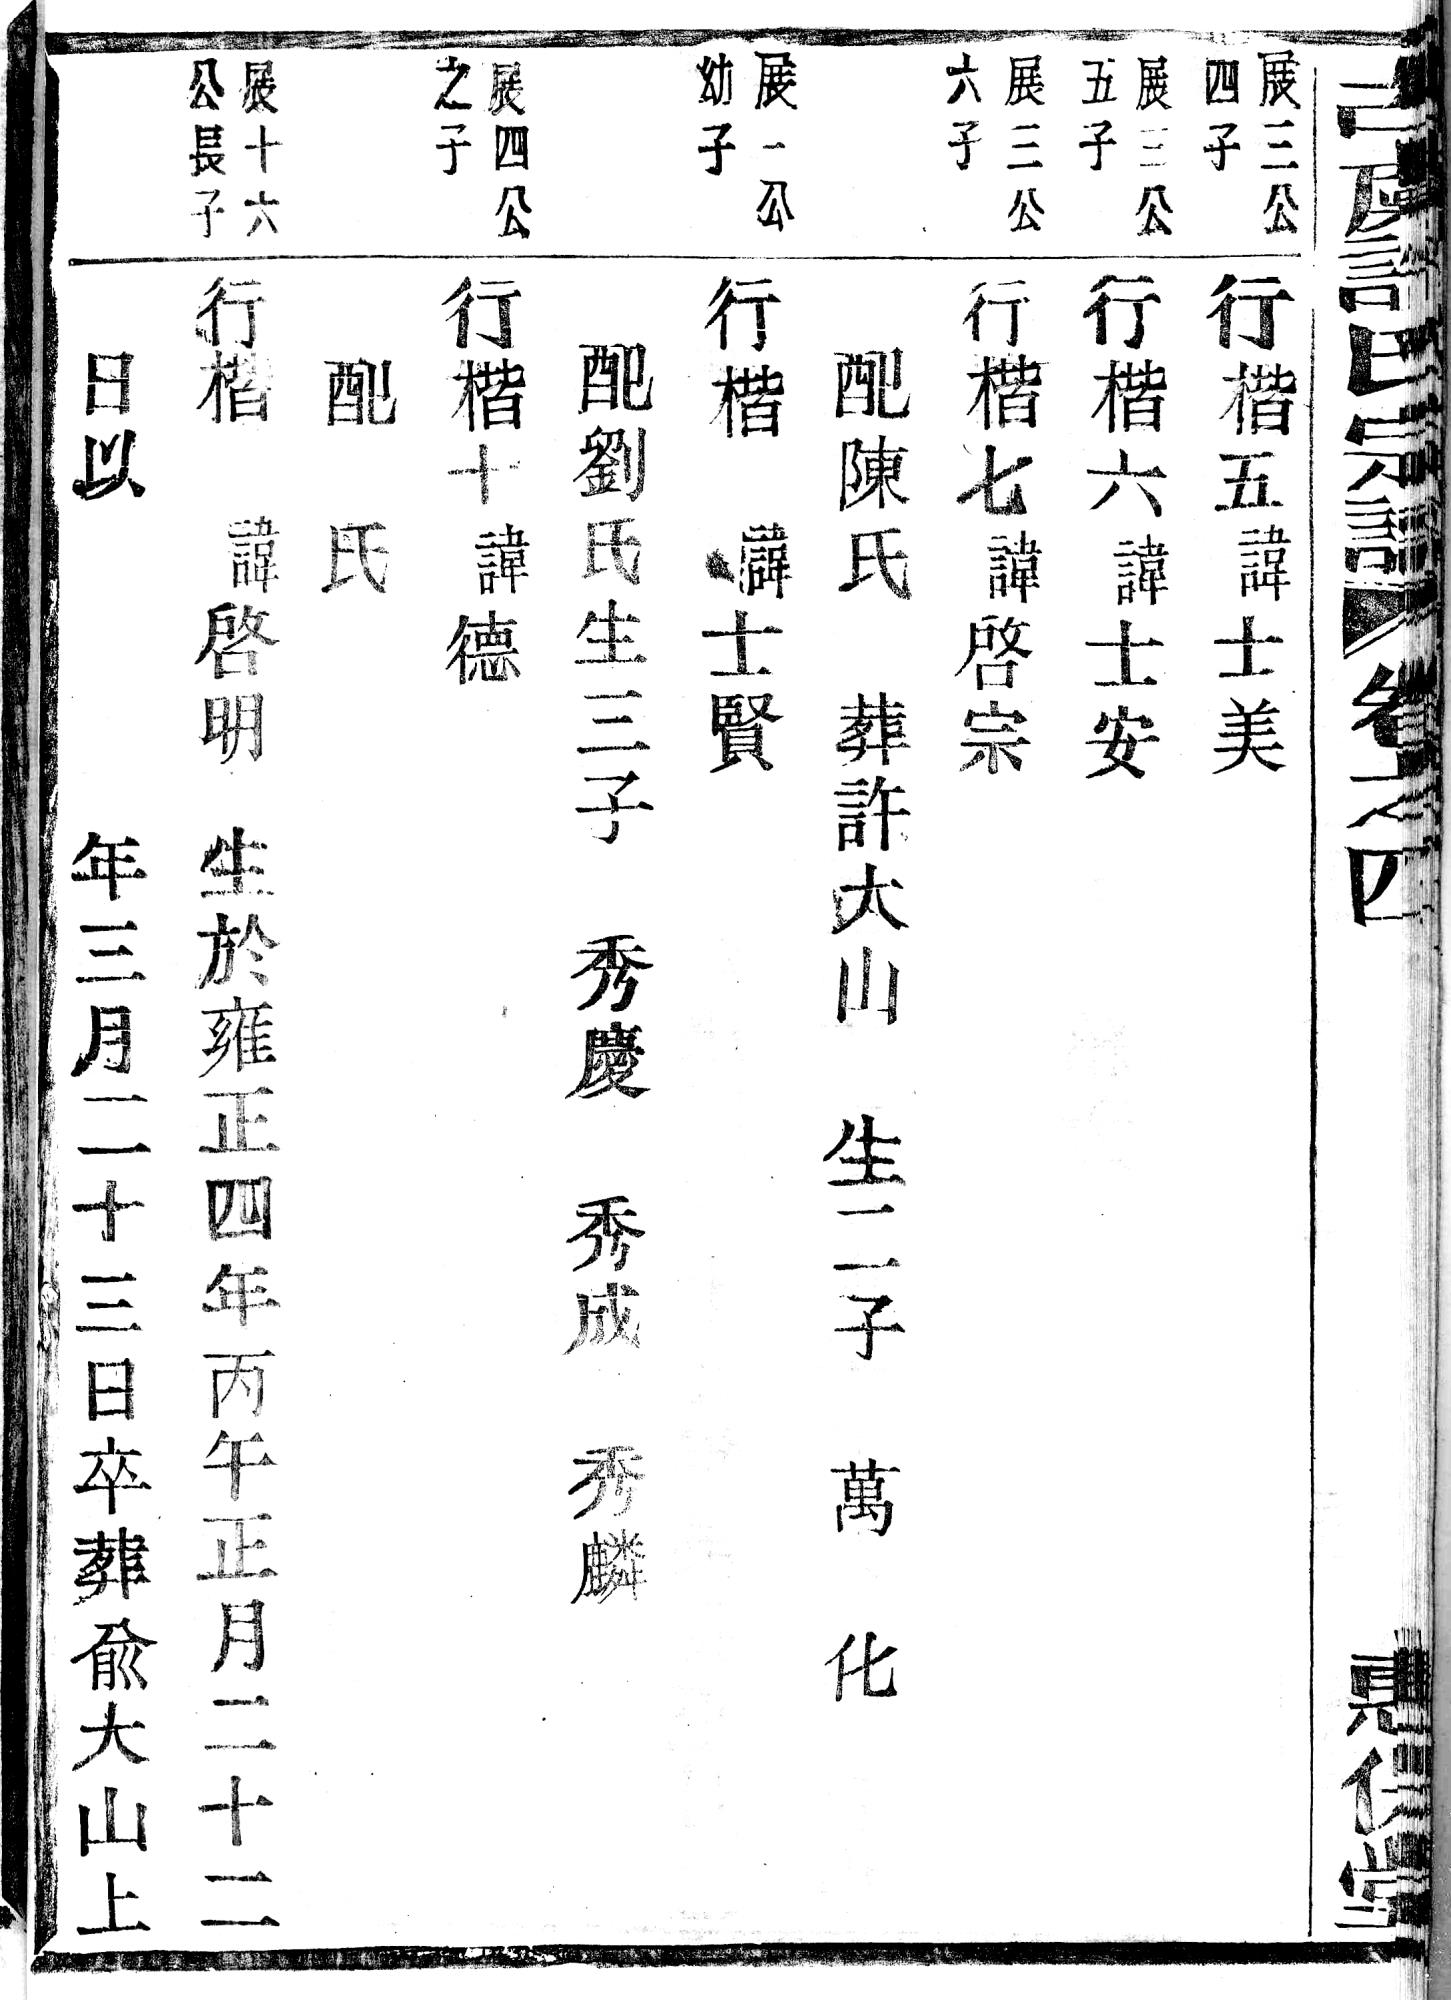 氏宗譜 卷之四
堂
展三公
四子
行楷五諱士美
展三公
五子
行楷六諱士安
展三公
六子
行楷七諱啓宗
配陳氏 葬許大山 生二子 萬 化
展一公
幼子
行楷 諱士賢
配劉氏生三子 秀慶 秀成 秀麟
展四公
之子
行楷十諱德
配 氏
展十六
公長子
行楷 諱啓明 生於雍正四年丙午正月二十二
日以 年三月二十三日卒葬兪大山上